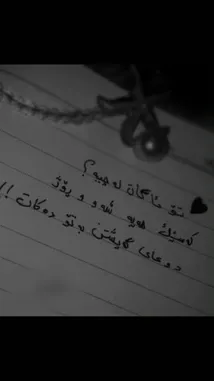 تۆ ئاگات لەچیە؟
کەسێک هەیە شەو و ڕۆژ
دوعای گەیشتن بە تۆ دەکات!!